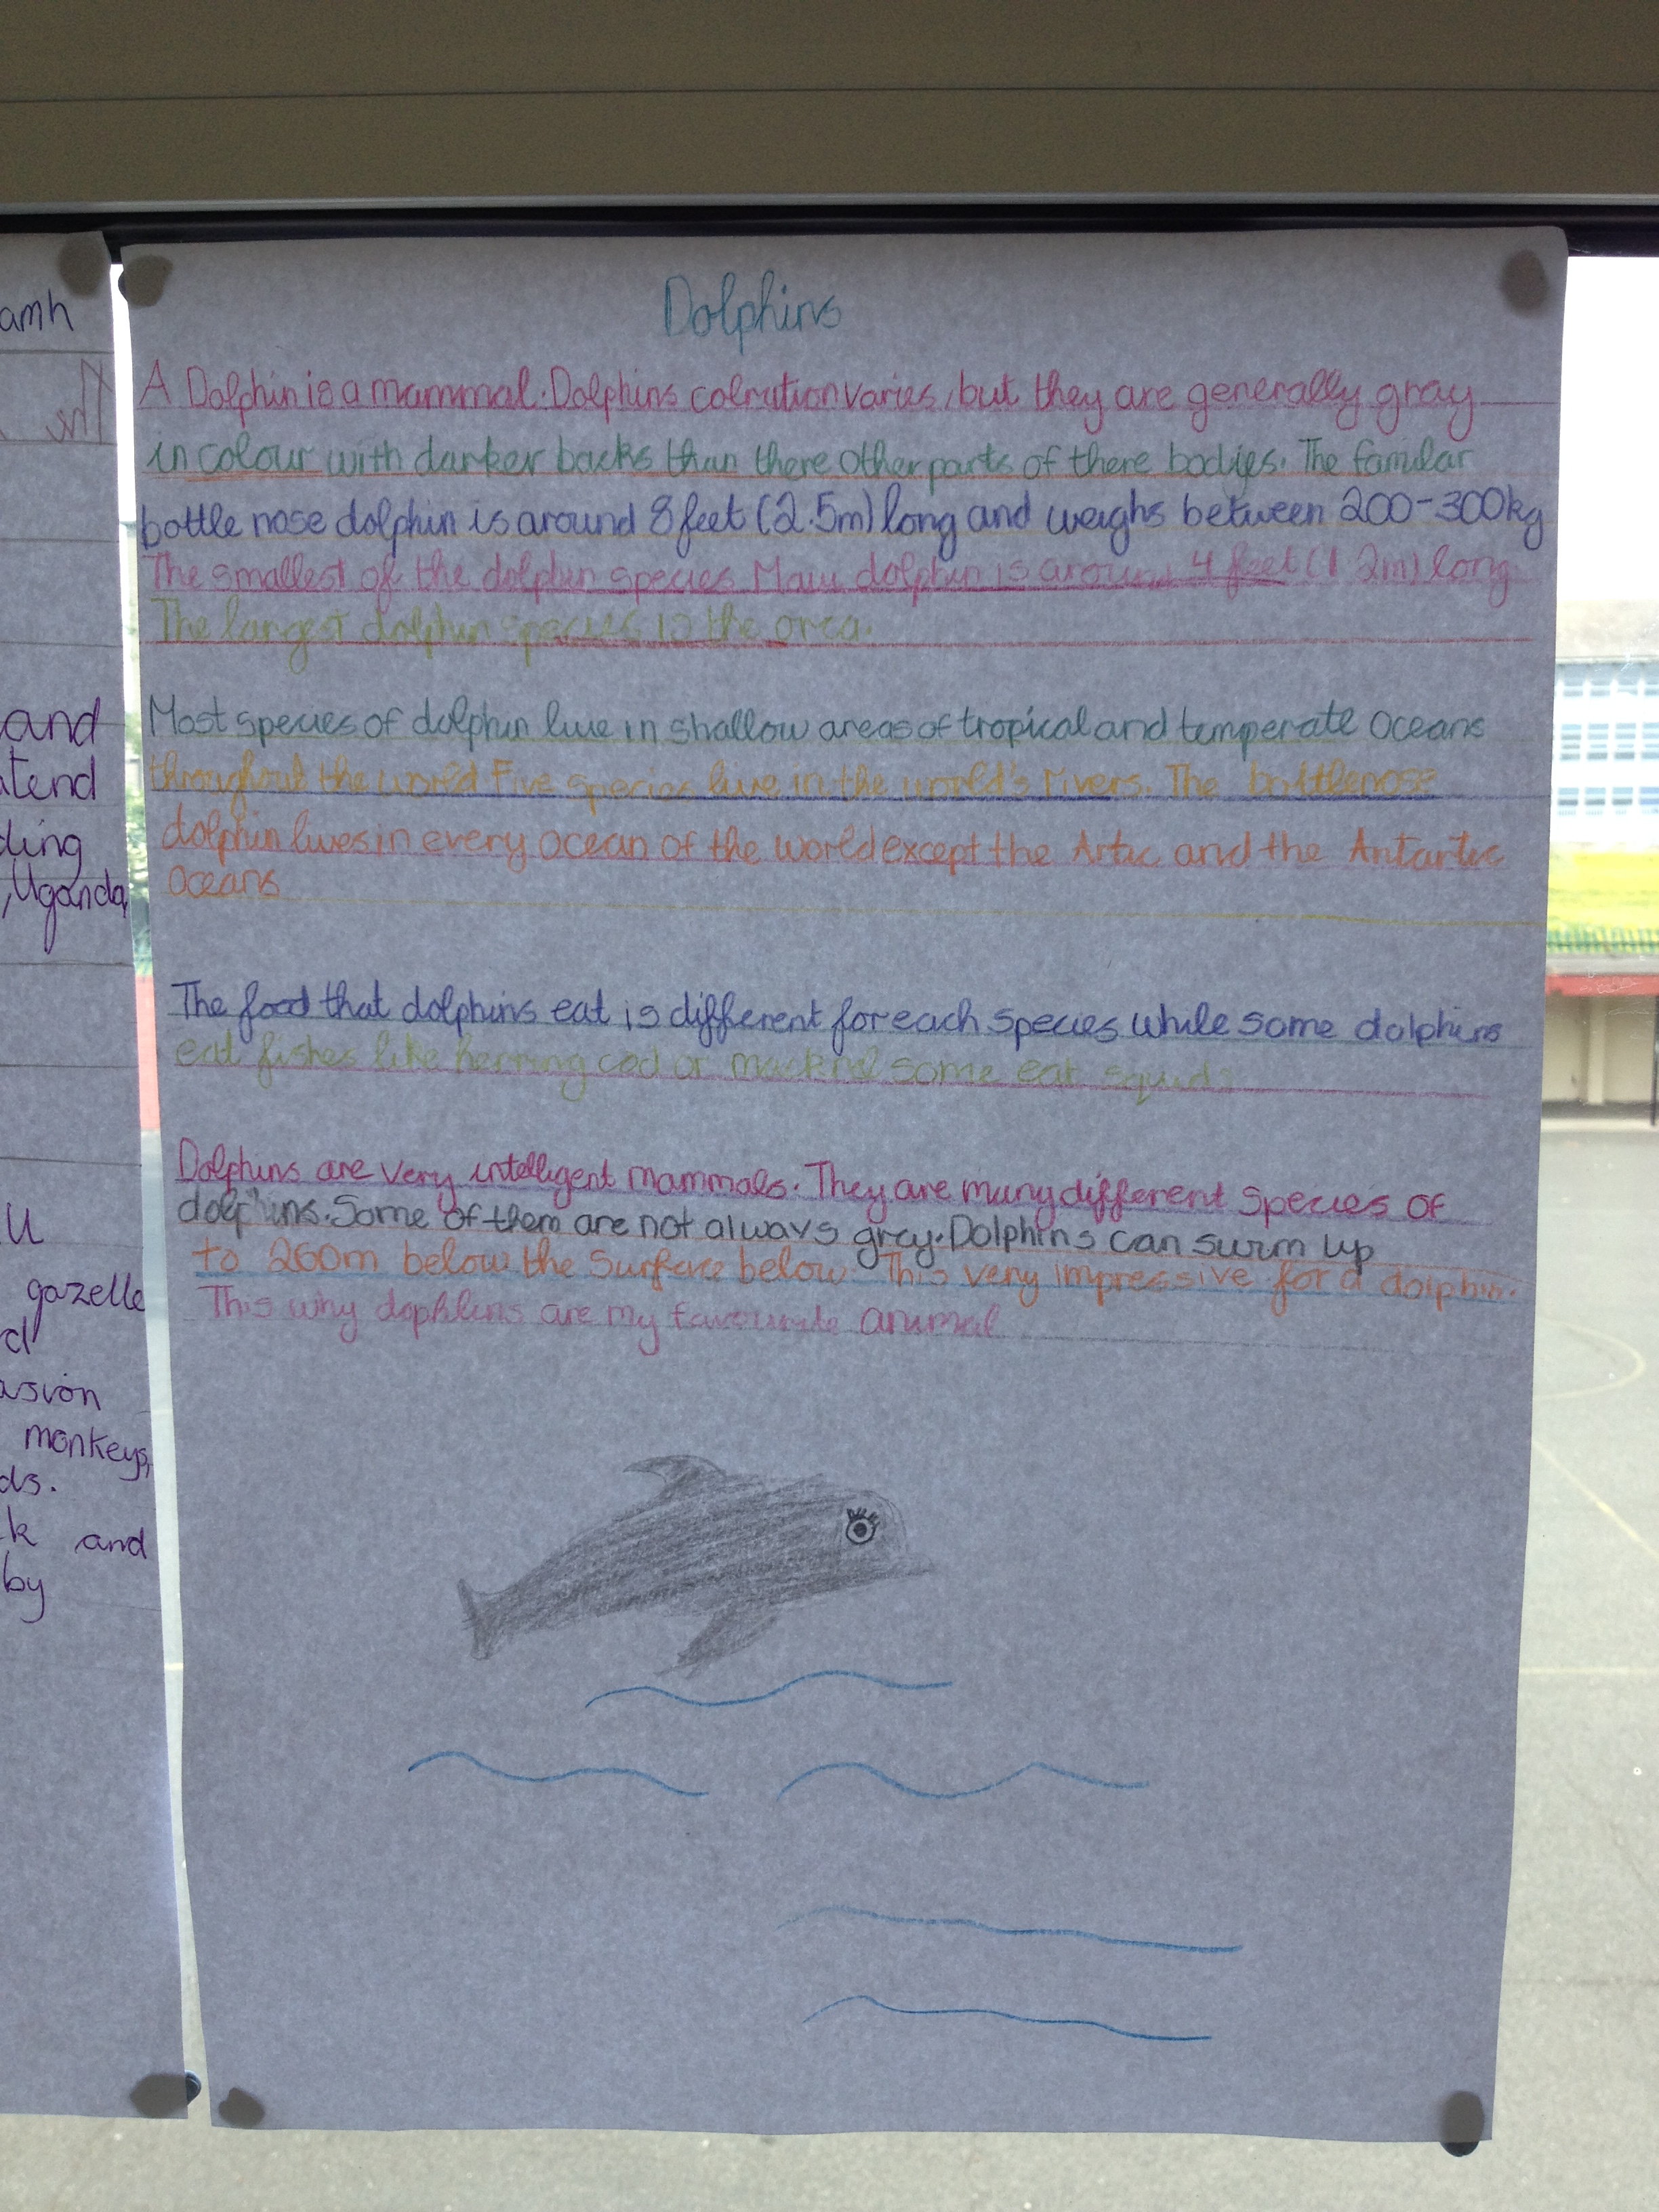 Dolphins
A Dolphin is a mammal. Dolphins colration varies, but they are generally gray
in colour with darker backs than there other parts of there bodies. The familar
bottle nose dolphin is around 8 feet (2.5m) long and weighs between 200-300kg
The smallest of the dolphin species Maui dolphin is around 4 feet (1.2m) long
The largest dolphin species is the orca.
Most species of dolphin live in shallow areas of tropical and temperate oceans
throughout the world Five species live in the world's rivers. The bottlenose
dolphin lives in every ocean of the world except the Artic and the Antartic
Oceans
The food that dolphins eat is different for each species while some dolphins
eat fishes like herring cod or mackrel some eat squid.
Dolphins are very intelligent mammals. They are many different species of
dolphins. Some of them are not always gray. Dolphins can swim up
to 260m below the surface below. This very impressive for a dolphin.
This why dophlins are my favourite animal
amh
and
tend
ding
, Uganda,
U
gazelle
d
asion
monkeys,
ds.
k and
by